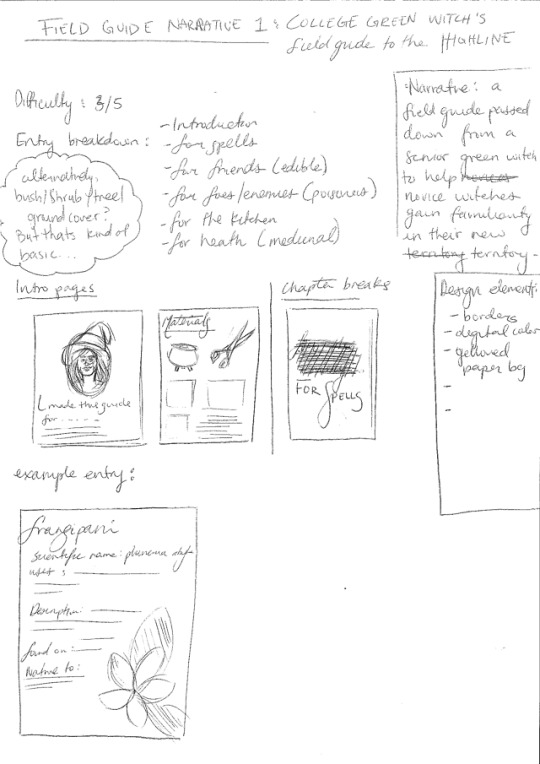 FIELD GUIDE NARRATIVE 1: COLLEGE GREEN WITCH'S
field guide to the HIGHLINE
Difficulty: 3/5
Entry breakdown:
- Introduction
- for spells
- for friends (edible)
- for foes/enemies (poisonous)
- for the kitchen
- for heath (medicinal)
alternatively,
bush/shrub/tree/
ground cover?
But thats kind of
basic...
Narrative: a
field guide passed
down from a
senior green witch
to help
novice witches
gain familiarity
in their new
territory territory-
Intro pages
I made this guide
for .....
Materials
Chapter breaks
FOR SPELLS
Design elements:
- borders
- digital color
-
paper bg
-
-
example entry:
frangipani
Scientific name: plumeria
Description:
found on:
Native to: